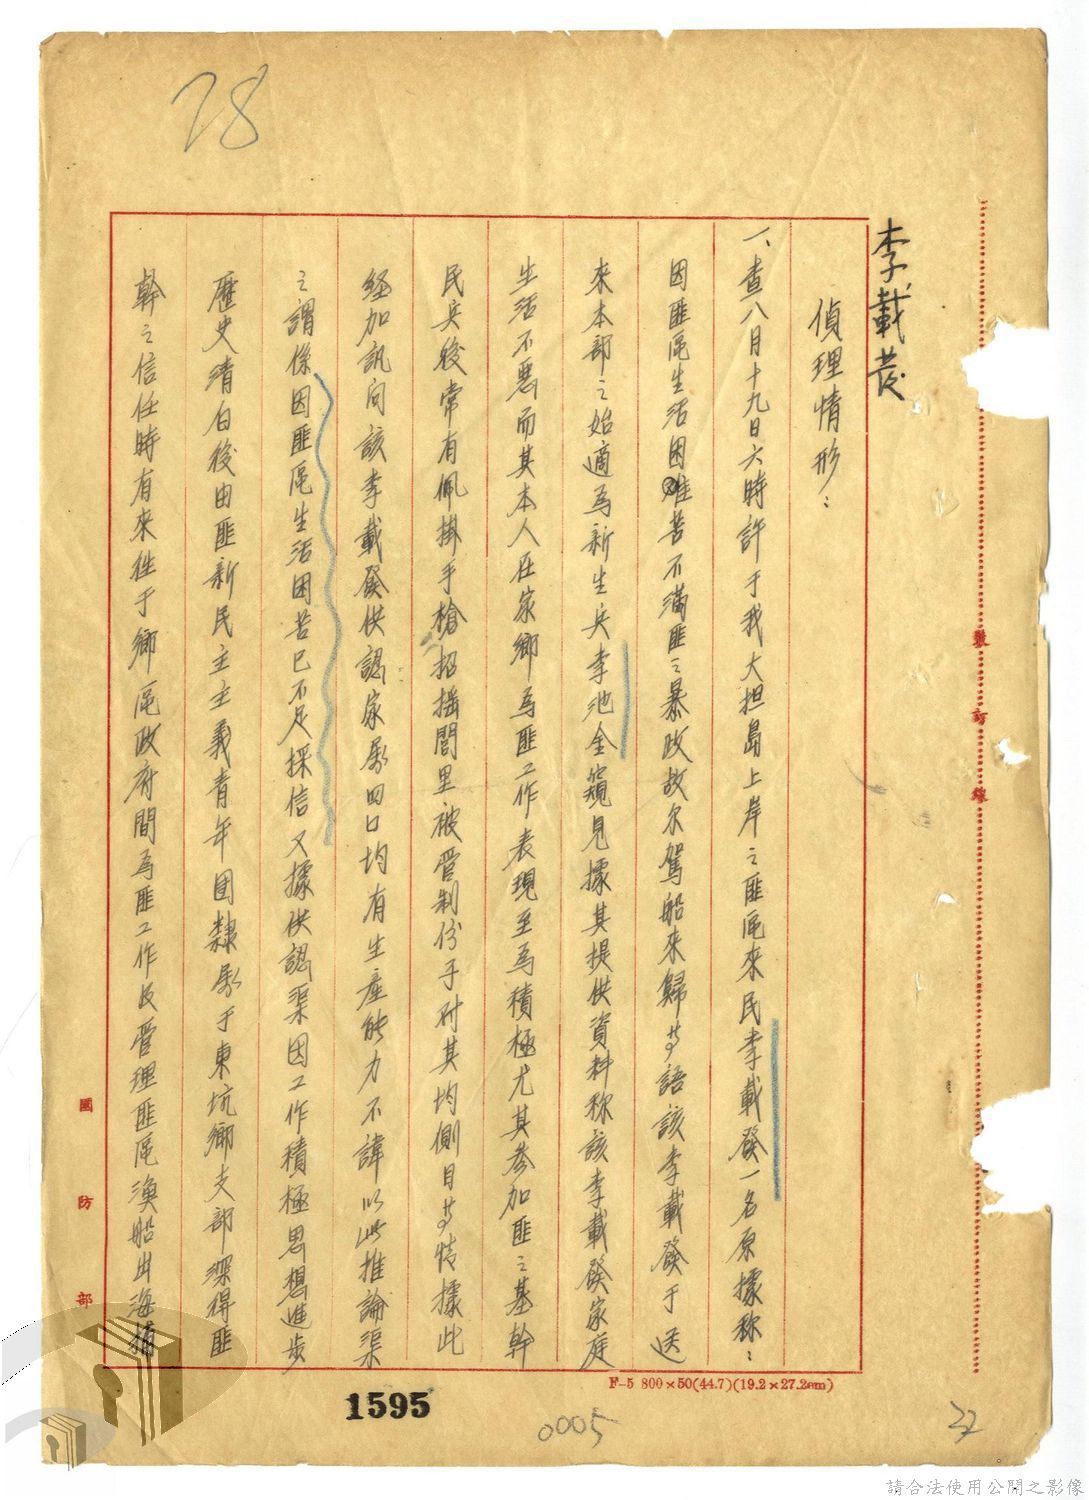 78
李載發
偵理情形：
一、查八月十九日六時許于我大担島上岸之匪區來民李載發一名原據称：
因匪區生活困难苦不滿匪之暴政故尔駕船來歸等語該李載發于送
來本部之始適為新生兵李池金窺見據其提供資料称該李載發家庭
生活不惡而其本人在家鄉為匪工作表現至為積極尤其参加匪之基幹
民兵後常有佩掛手槍招搖閭里被管制份子对其均側目等情據此
經加訊问該李載發供認家屬四口均有生產能力不諱以此推論渠
之謂係因匪區生活困苦已不足採信又據供認渠因工作積極思想進步
歷史清白後由匪新民主主義青年团隸屬于東坑鄉支部深得匪
幹之信任時有來往于鄉區政府間為匪工作及管理匪區漁船出海捕
號
訂
線
國防部
F-5 800×50(44.7)(19.2×27.2cm)
1595
0005
22
請合法使用公開之影像